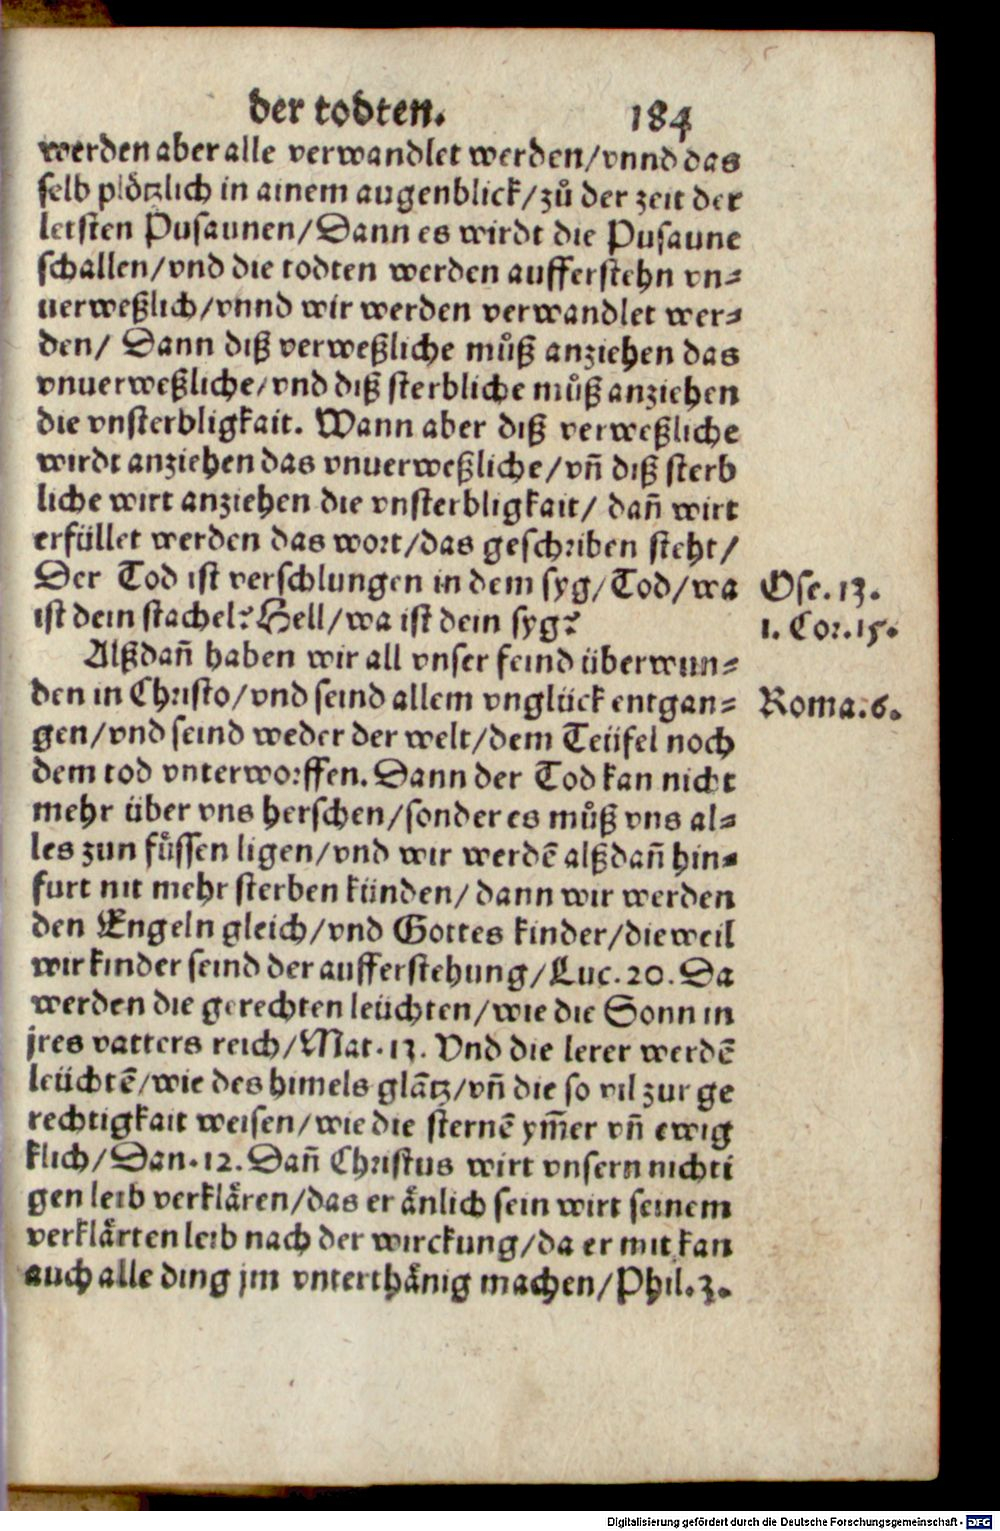 der todten. 184
werden aber alle verwandlet werden/vnnd das
selb plötzlich in ainem augenblick/zů der zeit der
letsten Pusaunen/Dann es wirdt die Pusaune
schallen/vnd die todten werden aufferstehn vn-
uerweßlich/vnnd wir werden verwandlet wer-
den/ Dann diß verweßliche můß anziehen das
vnuerweßliche/vnd diß sterbliche můß anziehen
die vnsterbligkait. Wann aber diß verweßliche
wirdt anziehen das vnuerweßliche/vñ diß sterb
liche wirt anziehen die vnsterbligkait/ dañ wirt
erfüllet werden das wort/das geschriben steht/
Der Tod ist verschlungen in dem syg/Tod/wa
Ose. 13.
ist dein stachel? Hell/wa ist dein syg?
1. Cor. 15.
Alßdañ haben wir all vnser feind überwun-
den in Christo/vnd seind allem vnglück entgan-
Roma. 6.
gen/vnd seind weder der welt/dem Teüfel noch
dem tod vnterworffen. Dann der Tod kan nicht
mehr über vns herschen/sonder es můß vns al-
les zun fůssen ligen/vnd wir werdē alßdañ hin-
furt nit mehr sterben künden/ dann wir werden
den Engeln gleich/vnd Gottes kinder/dieweil
wir kinder seind der aufferstehung/Luc. 20. Da
werden die gerechten leüchten/wie die Sonn in
jres vatters reich/Mat. 13. Vnd die lerer werdē
leüchtē/wie des himels glātz/vñ die so vil zur ge
rechtigkait weisen/wie die sternē ym̄er vñ ewig
klich/Dan. 12. Dañ Christus wirt vnsern nichti
gen leib verklären/das er änlich sein wirt seinem
verklärten leib nach der wirckung/da er mit kan
auch alle ding jm vnterthänig machen/Phil. 3.
Digitalisierung gefördert durch die Deutsche Forschungsgemeinschaft - DFG